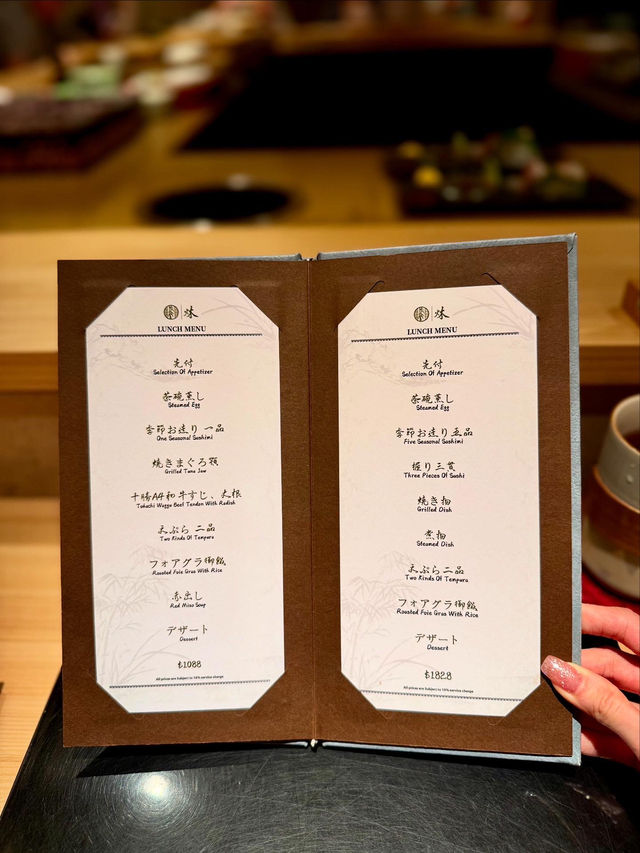 味
LUNCH MENU
先付
Selection Of Appetizer
茶碗蒸し
Steamed Egg
季節お造り 一品
One Seasonal Sashimi
焼きまぐろ顎
Grilled Tuna Jaw
十勝A4和牛すじ、大根
Tokachi Wagyu Beef Tendon With Radish
天ぷら 二品
Two Kinds Of Tempura
フォアグラ御飯
Roasted Foie Gras With Rice
赤出し
Red Miso Soup
デザート
Dessert
$1088
All prices are Subject to 10% service charge
味
LUNCH MENU
先付
Selection Of Appetizer
茶碗蒸し
Steamed Egg
季節お造り五品
Five Seasonal Sashimi
握り三貫
Three Pieces Of Sushi
焼き物
Grilled Dish
煮物
Steamed Dish
天ぷら二品
Two Kinds Of Tempura
フォアグラ御飯
Roasted Foie Gras With Rice
デザート
Dessert
All prices are Subject to 10% service charge